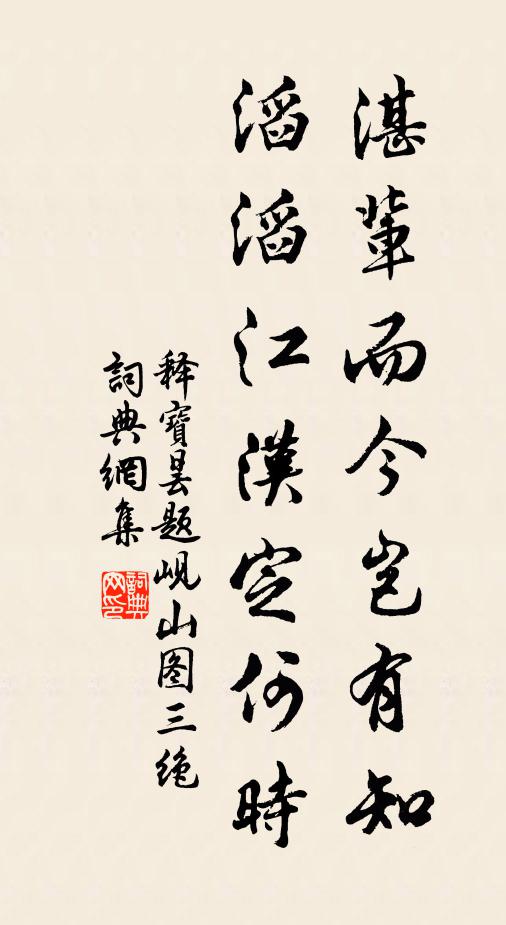 湛輩而今豈有知
滔滔江漢定何時
释寶曇题岘山图三绝
詞典網集
詞典网印